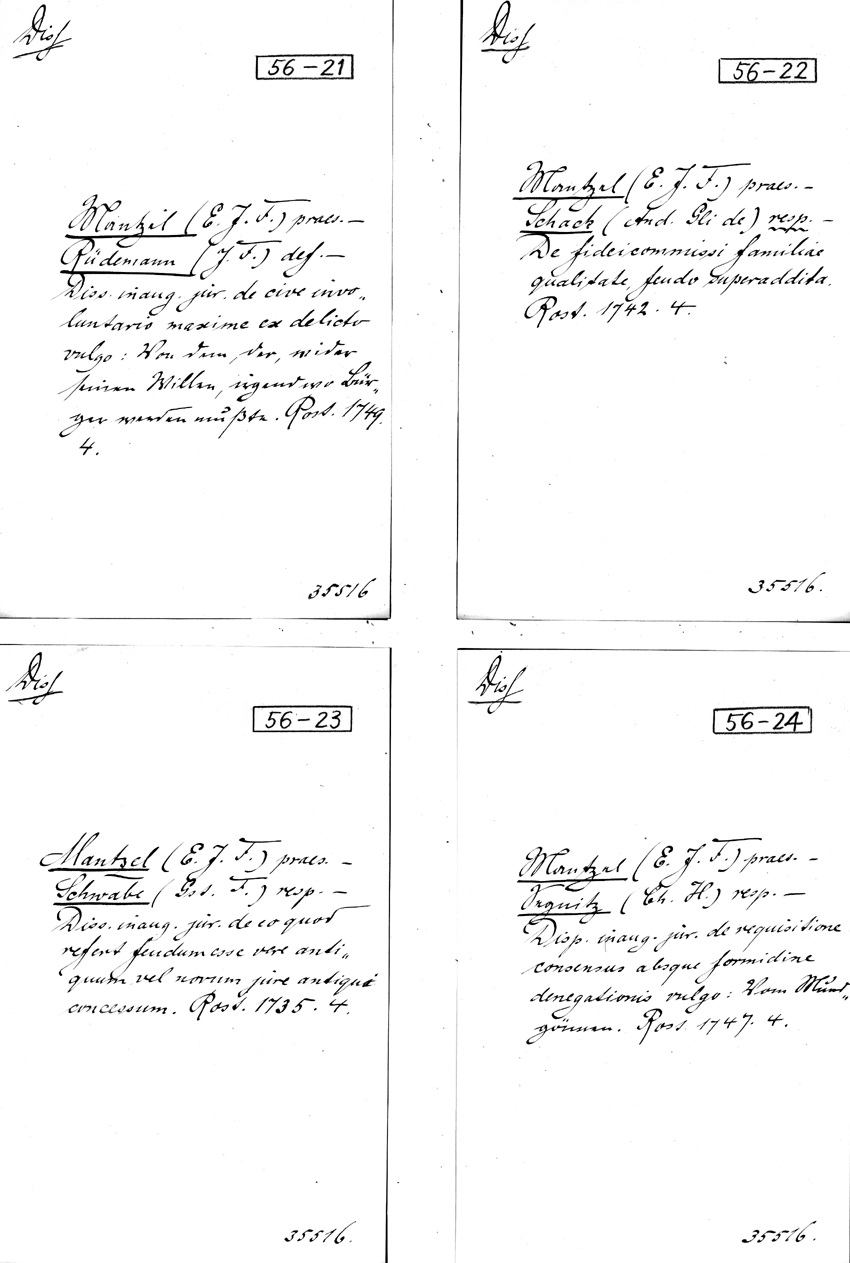 Diss
56-21
Mantzel (E. J. F.) praes. —
Rüdemann (J. F.) def. —
Diss. inaug. jur. de cive invo„
luntario maxime ex delicto
vulgo: Von dem, der, wider
seinen Willen, irgendwo Bür„
ger werden mußte. Rost. 1749.
4.
35516
Diss
56-22
Mantzel (E. J. F.) praes. —
Schack (And. Gli de) resp. —
De fideicommissi familiae
qualitate, feudo superaddita.
Rost. 1742. 4.
35516.
Diss
56-23
Mantzel (E. J. F.) praes. —
Schwabe (Gst. F.) resp. —
Diss. inaug. jur. de eo quod
refert feudum esse vere anti„
quum vel novum jure antiqui
concessum. Rost. 1735. 4.
35516.
Diss
56-24
Mantzel (E. J. F.) praes. —
(Ch. H.) resp. —
Disp. inaug. jur. de requisitione
consensus absque formidine
denegationis vulgo: Vom Mund„
gönnen. Rost. 1747. 4.
35516.